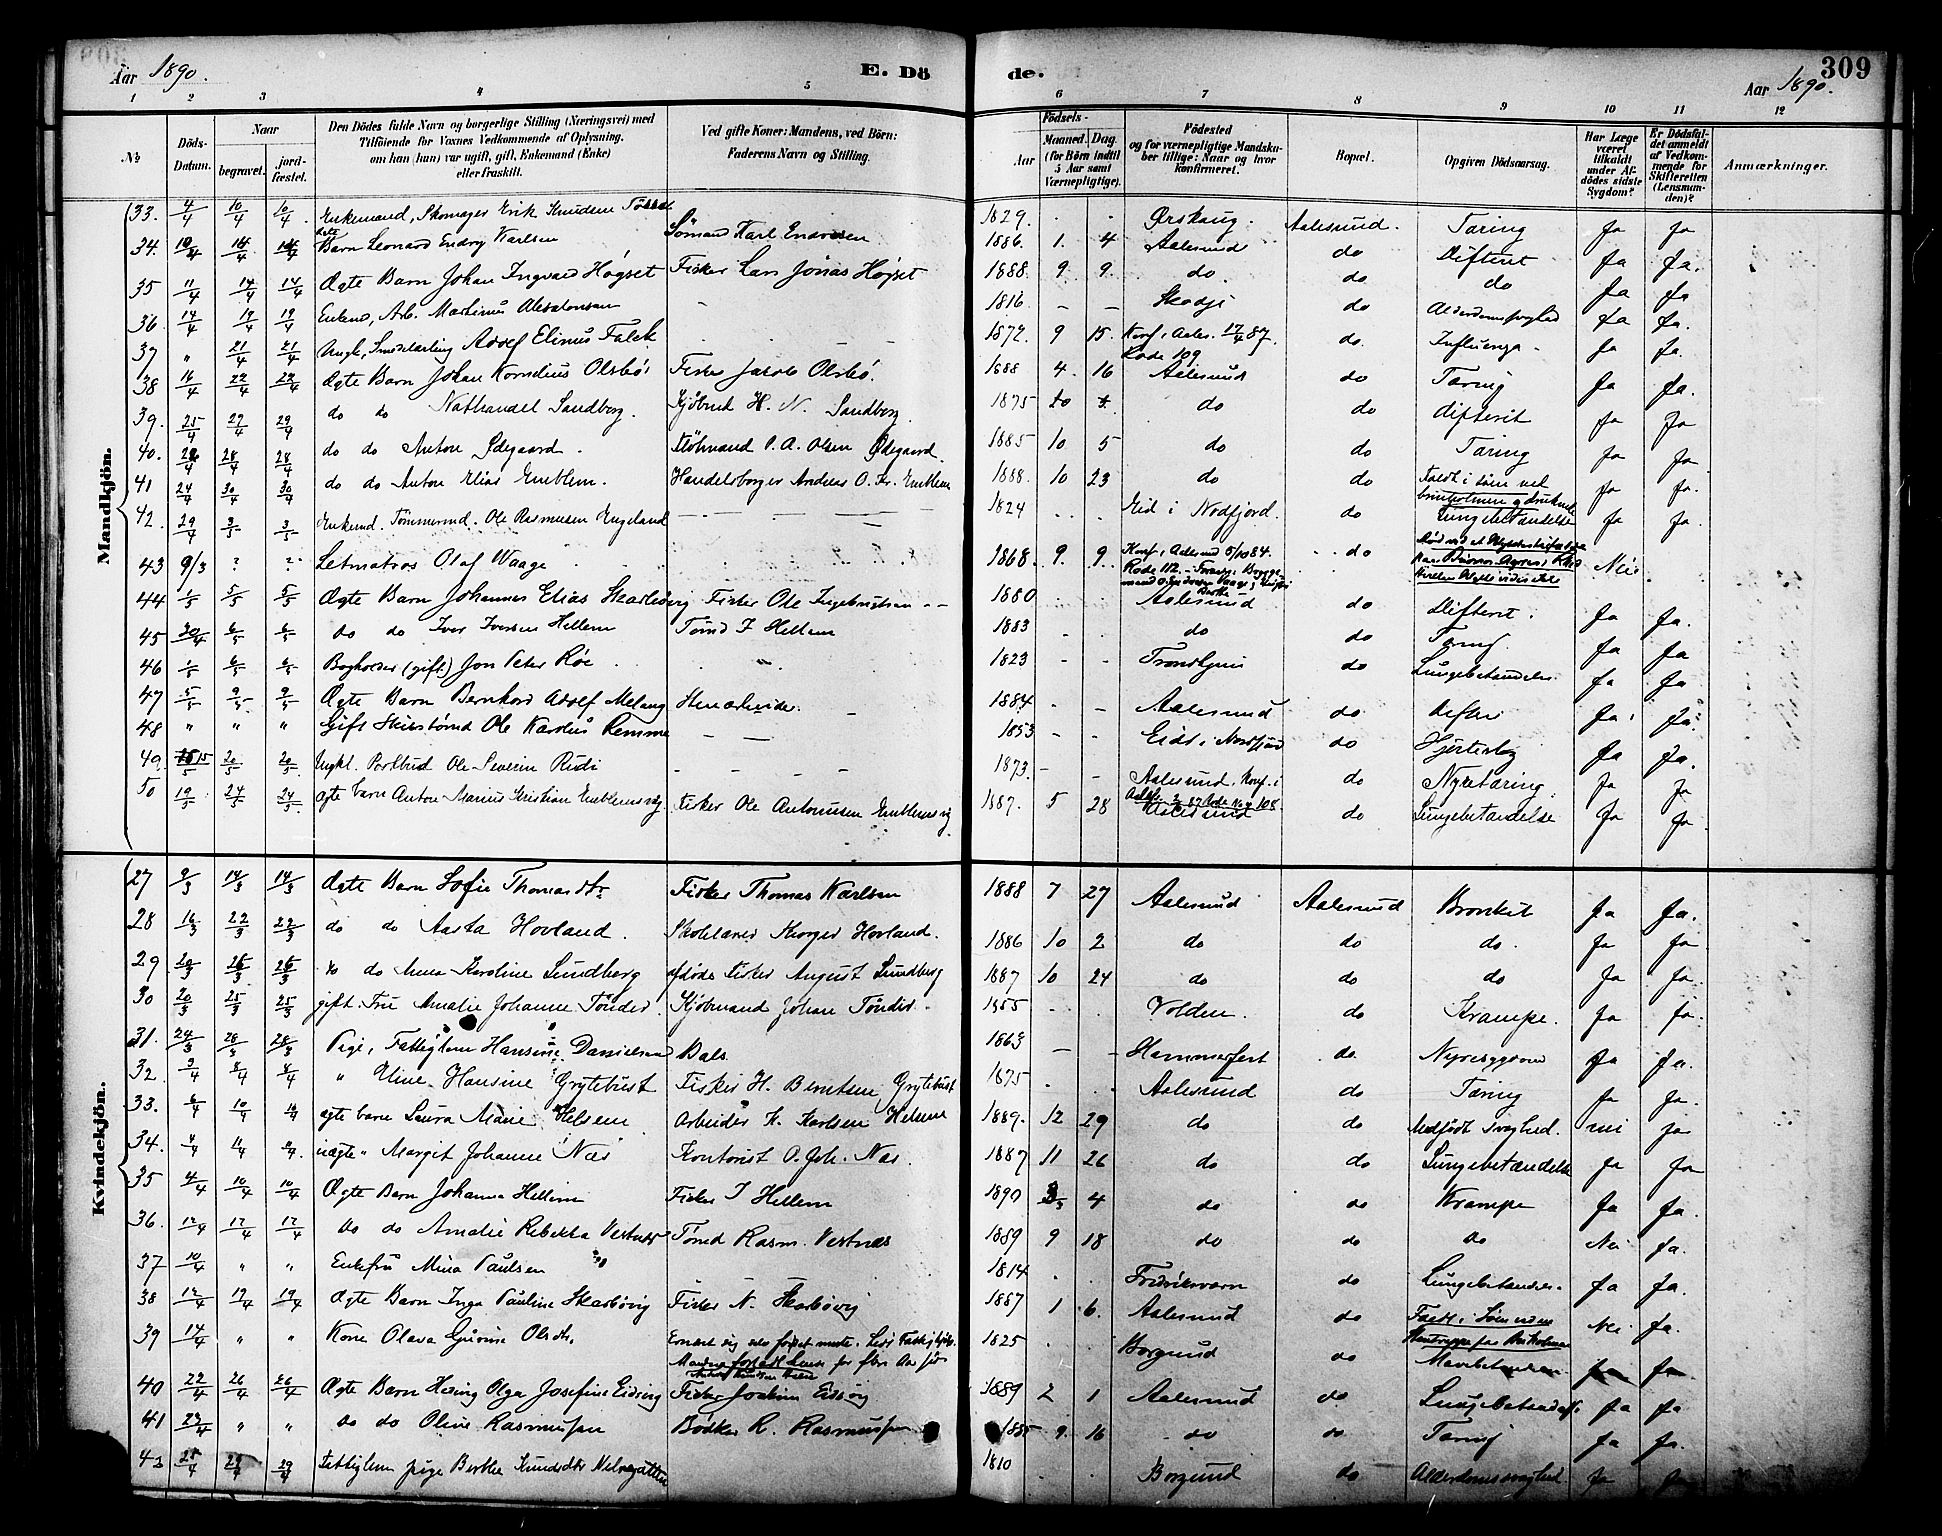 Aar 1890.
E. Dö
de.
Aar 1890.
309
1 2 3 4 5 6 7 8 9 10 11 12
No
Döds-Datum.
Naar
begravet.
jord-fæstet.
Den Dödes fulde Navn og borgerlige Stilling (Næringsvei) med
Tilföiende for Voxnes Vedkommende af Oplysning,
om han (hun) var ugift, gift, Enkemand (Enke)
eller fraskilt.
Ved gifte Koner: Mandens, ved Börn:
Faderens Navn og Stilling.
Födsels-
Aar
Maaned. Dag.
(for Börn indtil
5 Aar samt
Værnepligtige).
Födested
og for værnepligtige Mandsku-
ber tillige: Naar og hvor
konfirmeret.
Bopæl.
Opgiven Dödsaarsag.
Har Læge
været
tilkaldt
under Af-
dödes sidste
Sygdom?
Er Dödsfal-
det anmeldt
af Vedkom-
mende for
Skifteretten
(Lensman-
den)?
Anmærkninger.
Mandkjön.
33. 4/4 10/4 10/4 Enkemand, Skomager Erik Knudsen 1829 . . Ørskoug. Aalesund. Tæring Ja Ja
34. 10/4 14/4 14/4 Ægte Barn Leonard Endry Karlsen Sömand Karl Endresen 1886. 1. 4 Aalesund do Difterit Ja Ja.
35 11/4 14/4 14/4 Ægte Barn Johan Ingvald Høgset Fisker Lars Jonas Højset 1888 9. 9. do do do Ja Ja
36. 14/4 19/4 19/4 Enkem, Arb. Martinus Absalonsen 1816 - - Skodje do Alderdomssvaghed Ja Ja.
37 " 21/4 21/4 Ungk, Smedelærling Adolf Elinus Falck 1872 9 15. Konf. i Aales. 17/4 87. Rode 109 do. Influenza - Ja Ja.
38 16/4 22/4 22/4 Ægte Barn Johan Kornelius Olsbö Fisker Jacob Olsbö. 1888 4. 16 Aalesund do Tæring Ja Ja.
39. 25/4 29/4 29/4 do do Nathanael Sandborg. Kjöbmd H. N. Sandborg 1875 do do difterit Ja Ja
40. 28/4 28/4 do do Anton Ødegaard. O. A. Olsen Ødegaard. 1885 10 5 do do Tæring Ja Ja
41 24/4 30/4 30/4 do do Anton Elias Emblem. Handelsborger Andreas O. Emblem 1888. 10 23 do do Faldt i söen ved og druknede Ja Ja.
42. 29/4 3/5 3/5 Enkemd. Tømmermd. Ole Rasmusen Engeland 1824 . . Eid i Nordfjord. do Lungebetændelse Ja Ja.
43 9/3 ? ? Letmatros Olaf Waage 1868 9. 9. Konf. i Aalesund 5/10 84. Rode 112. do Nei
44 1/5 5/5 5/5 Ægte Barn Johannes Elias Skarbövig Fisker Ole Ingebrigtsen 1880 Aalesund do Difterit. Ja Ja.
45 30/4 6/5 6/5 do do Iver Iversen Hellem Tömd I Hellem 1883 - . do do Tæring Ja Ja
46 1/5 6/5 6/5 Bogholder (gift) Jon Peter Röe 1823 - - Trondhjem do Lungebetændelse Ja Ja
47 5/5 9/5 9/5 Ægte Barn Bernhard Adolf Melang Stenarbeider. 1884 - . Aalesund do Ja Ja
48 " " " Gift Skibstömd Ole Karolus Remme 1853 - - Eid i Nordfjord do Hjerteslag Ja Ja.
49. 15/5 20/5 20/5 Ungk. Ole Severin Rudi 1873. - - Aalesund, Konf. i do Nyretæring. Ja Ja
50 19/5 24/5 24/5 Ægte barn Anton Marius Kristian Emblemsvig Fisker Ole Antonusen Emblemsvig 1887. 5 28 Aalesund do Lungebetændelse Ja Ja
Kvindekjön.
27 9/3 14/3 14/3 Ægte Barn Sofie Thomasdtr Fisker Thomas Karlsen 1888 7 27 Aalesund Aalesund Bronkit Ja Ja.
28 16/3 22/3 22/3 do do Aasta Hovland. Skolelærer Hovland. 1886 10 2 do do do. Ja Ja
29 20/3 25/3 25/3 do do Anna Karoline Sundberg afdöde Fisker August Sundberg 1887 10 24 do do do Ja Ja.
30 20/3 25/3 25/3 gift. Fru Amalie Johanne Tönder. Kjöbmand Johan Tönder. 1855 . . Volden. do Krampe. Ja Ja.
31. 24/3 28/3 28/3 Pige, Fattiglem Hansine Danielsen Bals 1863 - - Hammerfest do. Nyresygdom Ja Ja.
32. 3/4 8/4 8/4 " Eline Hansine Grytebust Fisker H. Berntsen Grytebust 1875 . . Aalesund do Tæring Ja Ja.
33. 6/4 10/4 ægte barn Laura Marie Helsem. Arbeider K. Karlsen Helsem 1889. 12 29 do do Medfödt Svaghed. nei ja
34. 4/4 uægte " Margit Johanne Næs Kontorist O. Joh. Næs. 1887 11 26 do do Lungebetændelse Ja Ja
35 4/4 10/4 10/4 Ægte Barn Johanna Hellem Fisker I Hellem 1890 3 4 do do Krampe Ja Ja.
36. 12/4 17/4 17/4 do do Amalie Rebekka Vestnes Tömd Rasm. Vestnæs 1889 9 18 do do do Nei Ja.
37 10/4 " " Enkefru Mina Paulsen 1814 . . Fredriksværn do Lungebetændelse. Ja Ja.
38 12/4 19/4 19/4 Ægte Barn Inga Pauline Skarbövig Fisker N. Skarbövig 1887 1 6. Aalesund do Faldt i Söen Nei Ja.
39 14/4 " " Kone Olava Gurine Olsdtr. 1825 . Borgund do Ja Ja
40 22/4 26/4 26/4 Ægte Barn Olga Josefine Eidsvig Fisker Joakim Eidsvig 1889 2 1 Aalesund do Lungebetændelse Ja Ja
41 23/4 " " do do Oline Rasmussen Bödker R. Rasmussen 1885 9. 16 do do Tæring Ja Ja.
43 25/4 29/4 29/4 Fattiglem pige Berthe Knudsdtr 1810 . . Borgund do Alderdomssvaghed Ja Ja